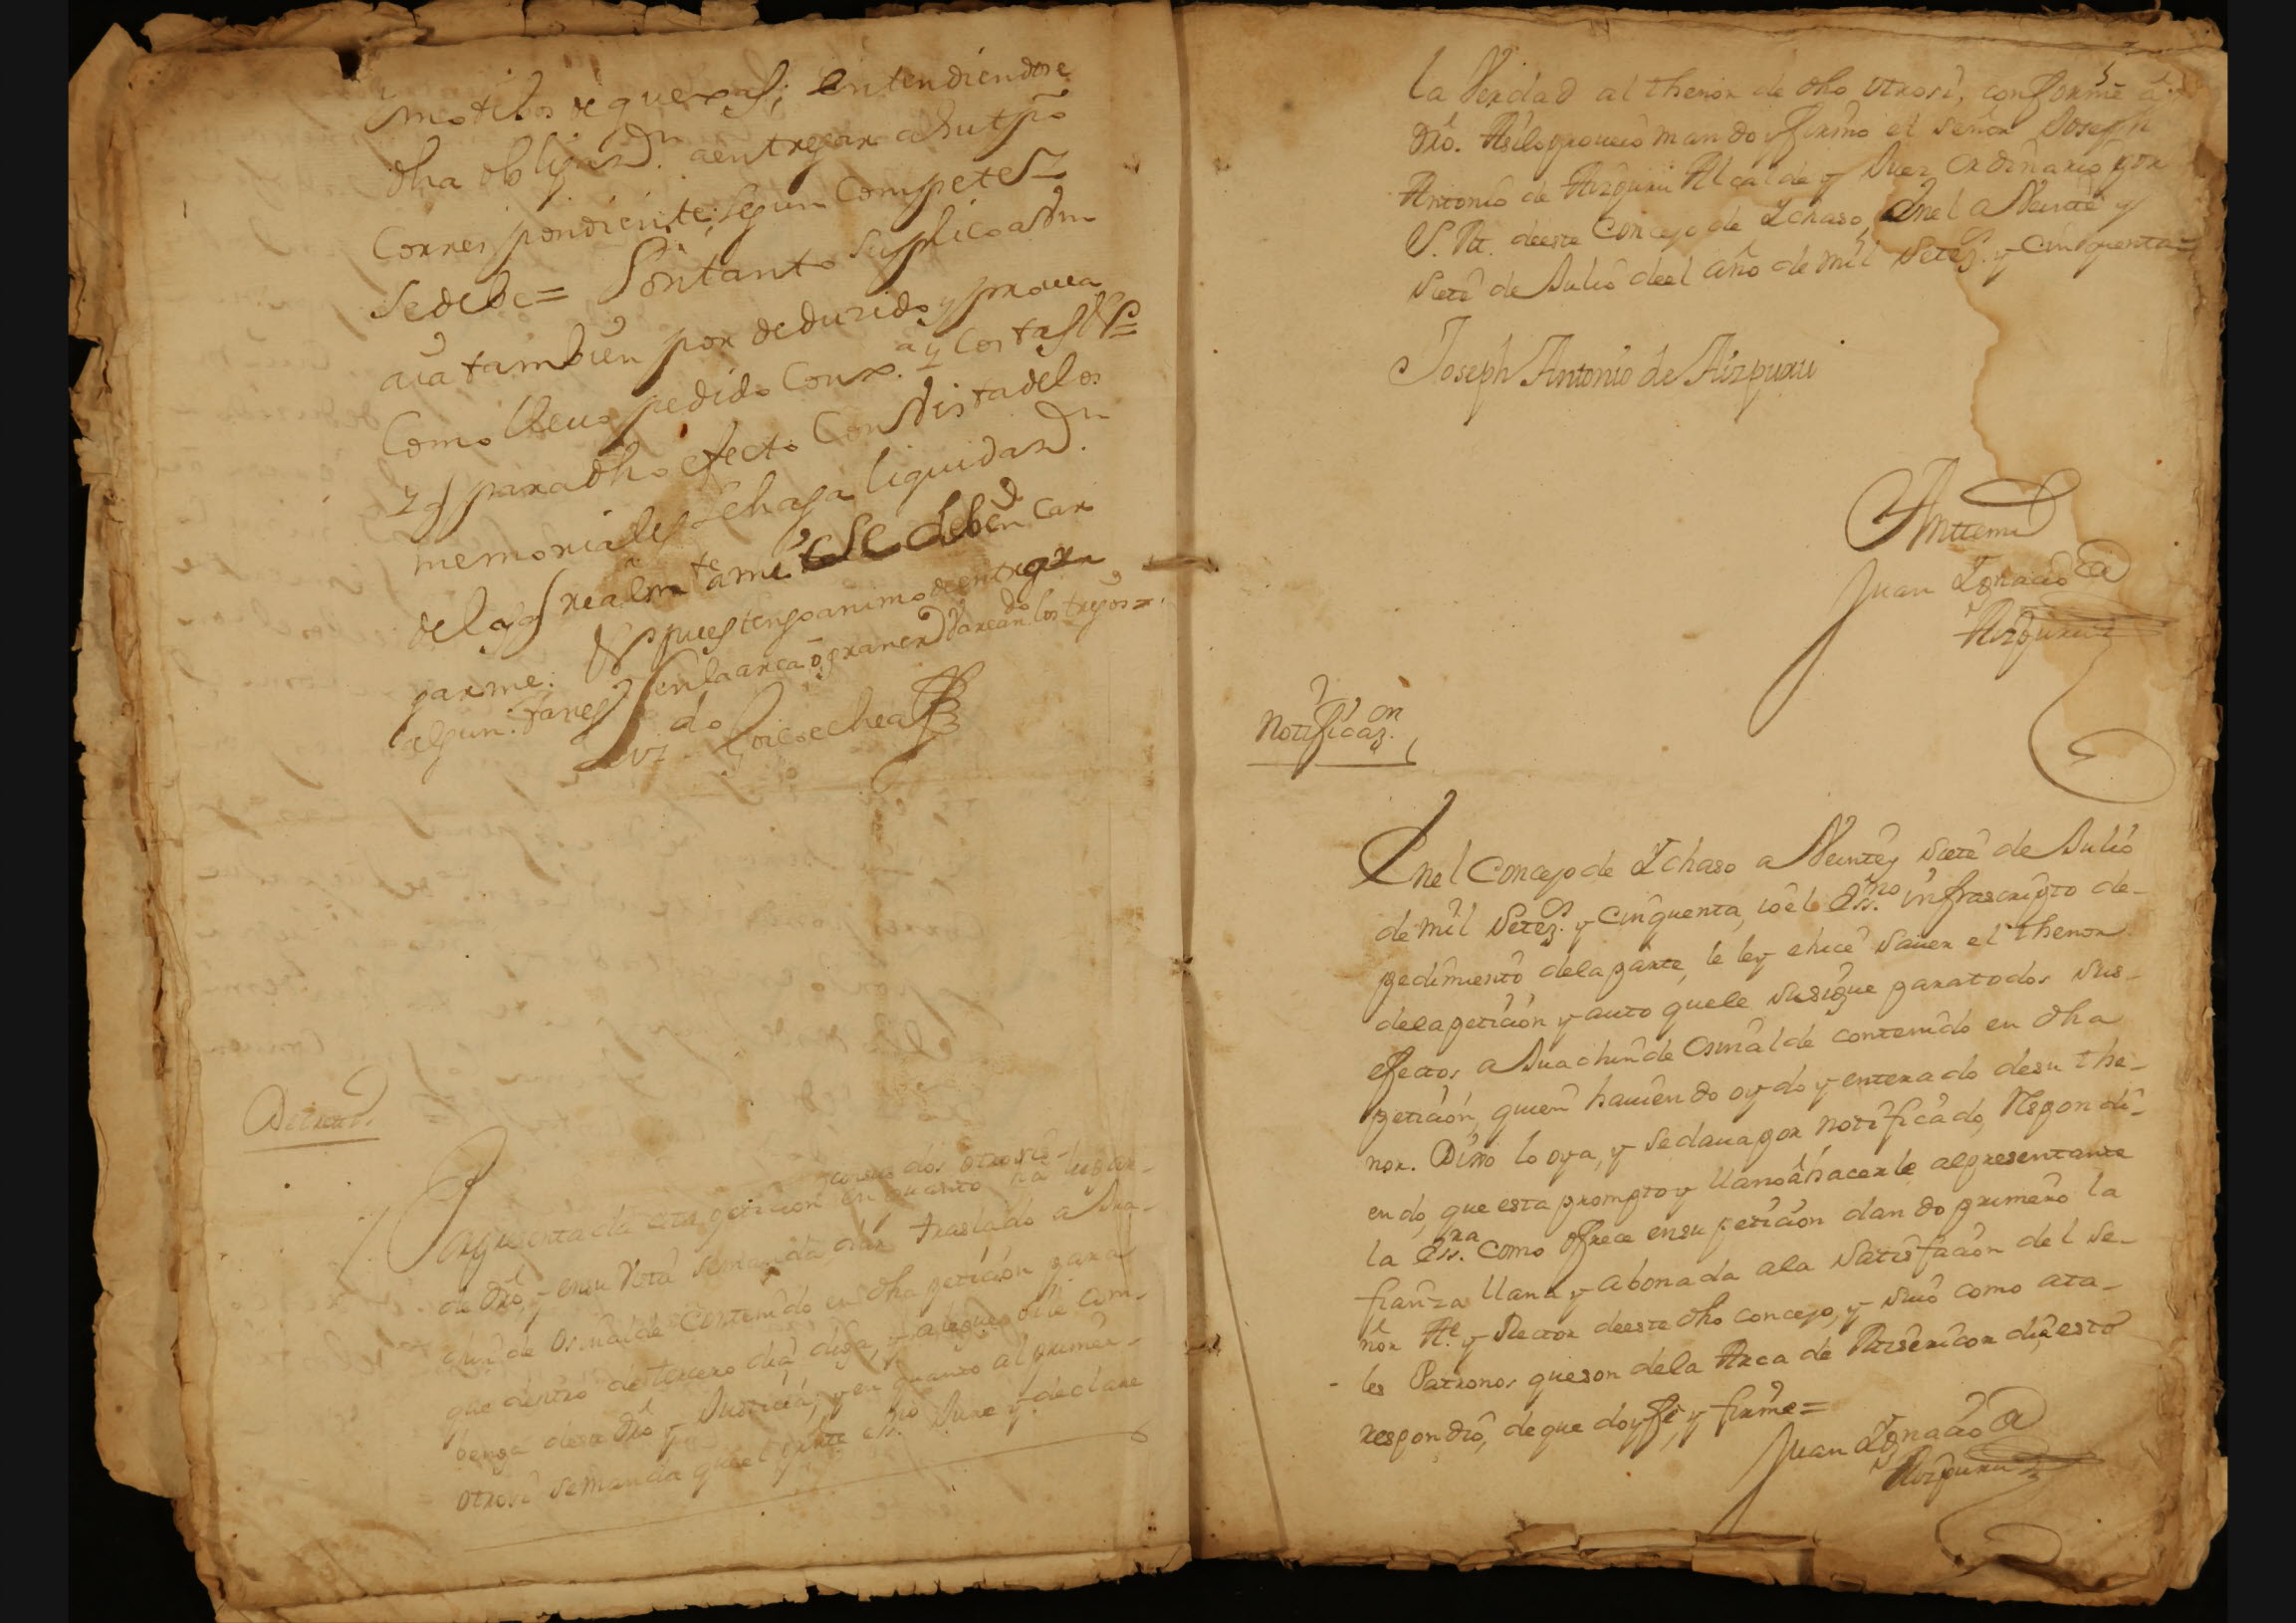 motibos de quexas; entendiendose
dha obligazn. a entregar a su tpõ
Correspondiente, segun Compete S
Se debe= Portanto suplico a Vm
aia tambien por deduzido y provea
Como llevo pedido Con x.a y Costas Vt
y q para dho efecto Con Vista de los
memoriales se haga liquidazn.
de las q realmte a mi se deben car
garme. Vt pues tengo animo de entregar
algun. fanes en la arca o graner
do Goicoechea
Decreto.
con sus dos otrosies
Presentada esta peticion en quanto ha lugar
de dro, y en su vista se manda dar traslado a Jua-
chin de Osinalde Contenido en dha peticion para
que dentro de tercero dia diga, y alegue lo que com-
benga de su dro y Justicia, y en quanto al primer-
otrosi se manda que el pnte essno Jure y declare
la Verdad al thenor de dho otrosi, conforme a
dro. Asi lo proveio mando y firmo el señor Joseph
Antonio de Aizpuru Alcalde y Juez ordinario por
S. M. de este Concejo de Ichaso, en el a Veinte y
Siete de Julio de el año de mil Setez. y Cinquenta=
Joseph Antonio de Aizpuru
Anttemi
Juan Ignacio de
Aizpuru
Notificazon.
En el Concejo de Ichaso a Veinte y siete de Julio
de mil Setezs. y Cinquenta, io el Essno. infrascripto de-
pedimiento de la parte, le ley e hice saver el thenor
de la peticion y auto que le susigue para todos sus-
efectos a Juachin de Osinalde contenido en dha
peticion, quien haviendo oydo y enterado de su the-
nor. Dixo lo oya, y se dava por notificado, Respondi-
endo, que esta prompto y llano â hacerle al presentante
la Essra. como ofrece en su peticion dando primero la
fianza llana y abonada a la satisfacion del Se-
ñor Ale. y Rector de este dho concejo, y suio como ata-
les Patronos que son de la Arca de Misericordia, esto
respondio, de que doy fe, y firme=
Juan Ignacio de
Aizpuru